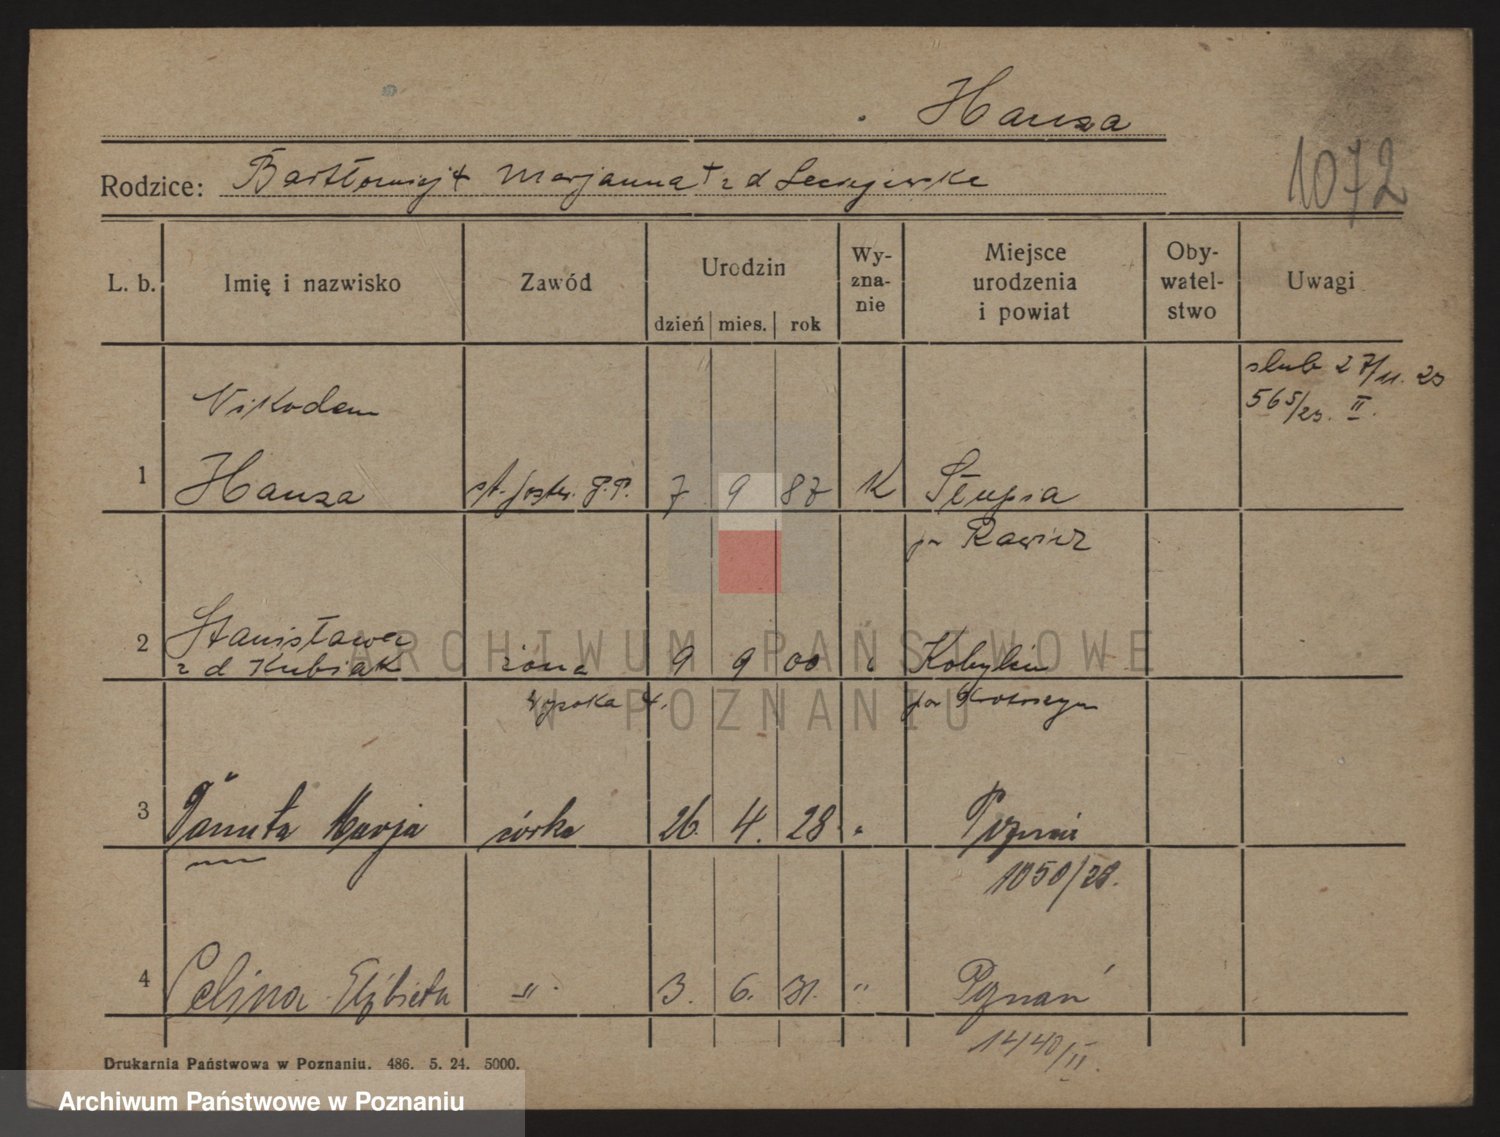 Hauza
1072
Rodzice: Bartłomiej + Marjanna + z d
L. b. Imię i nazwisko Zawód Urodzin dzień mies. rok Wy-zna-nie Miejsce urodzenia i powiat Oby-watel-stwo Uwagi
ślub 27/11. 23
565/23. II.
Nikodem
1 Hauza st. P.P. 7 9 87 K Słupia
pow Rawicz
2 Stanisława
z d Kubiak żona 9 9 00 Kobylin
Wysoka 4. pow Krotoszyn
3 Danuta Marja córka 26. 4. 28. " Poznań
1050/28.
4 Celina Elżbieta " 3. 6. 31. " Poznań
1440/II.
Drukarnia Państwowa w Poznaniu. 486. 5. 24. 5000.
ARCHIWUM PAŃSTWOWE
W POZNANIU
Archiwum Państwowe w Poznaniu